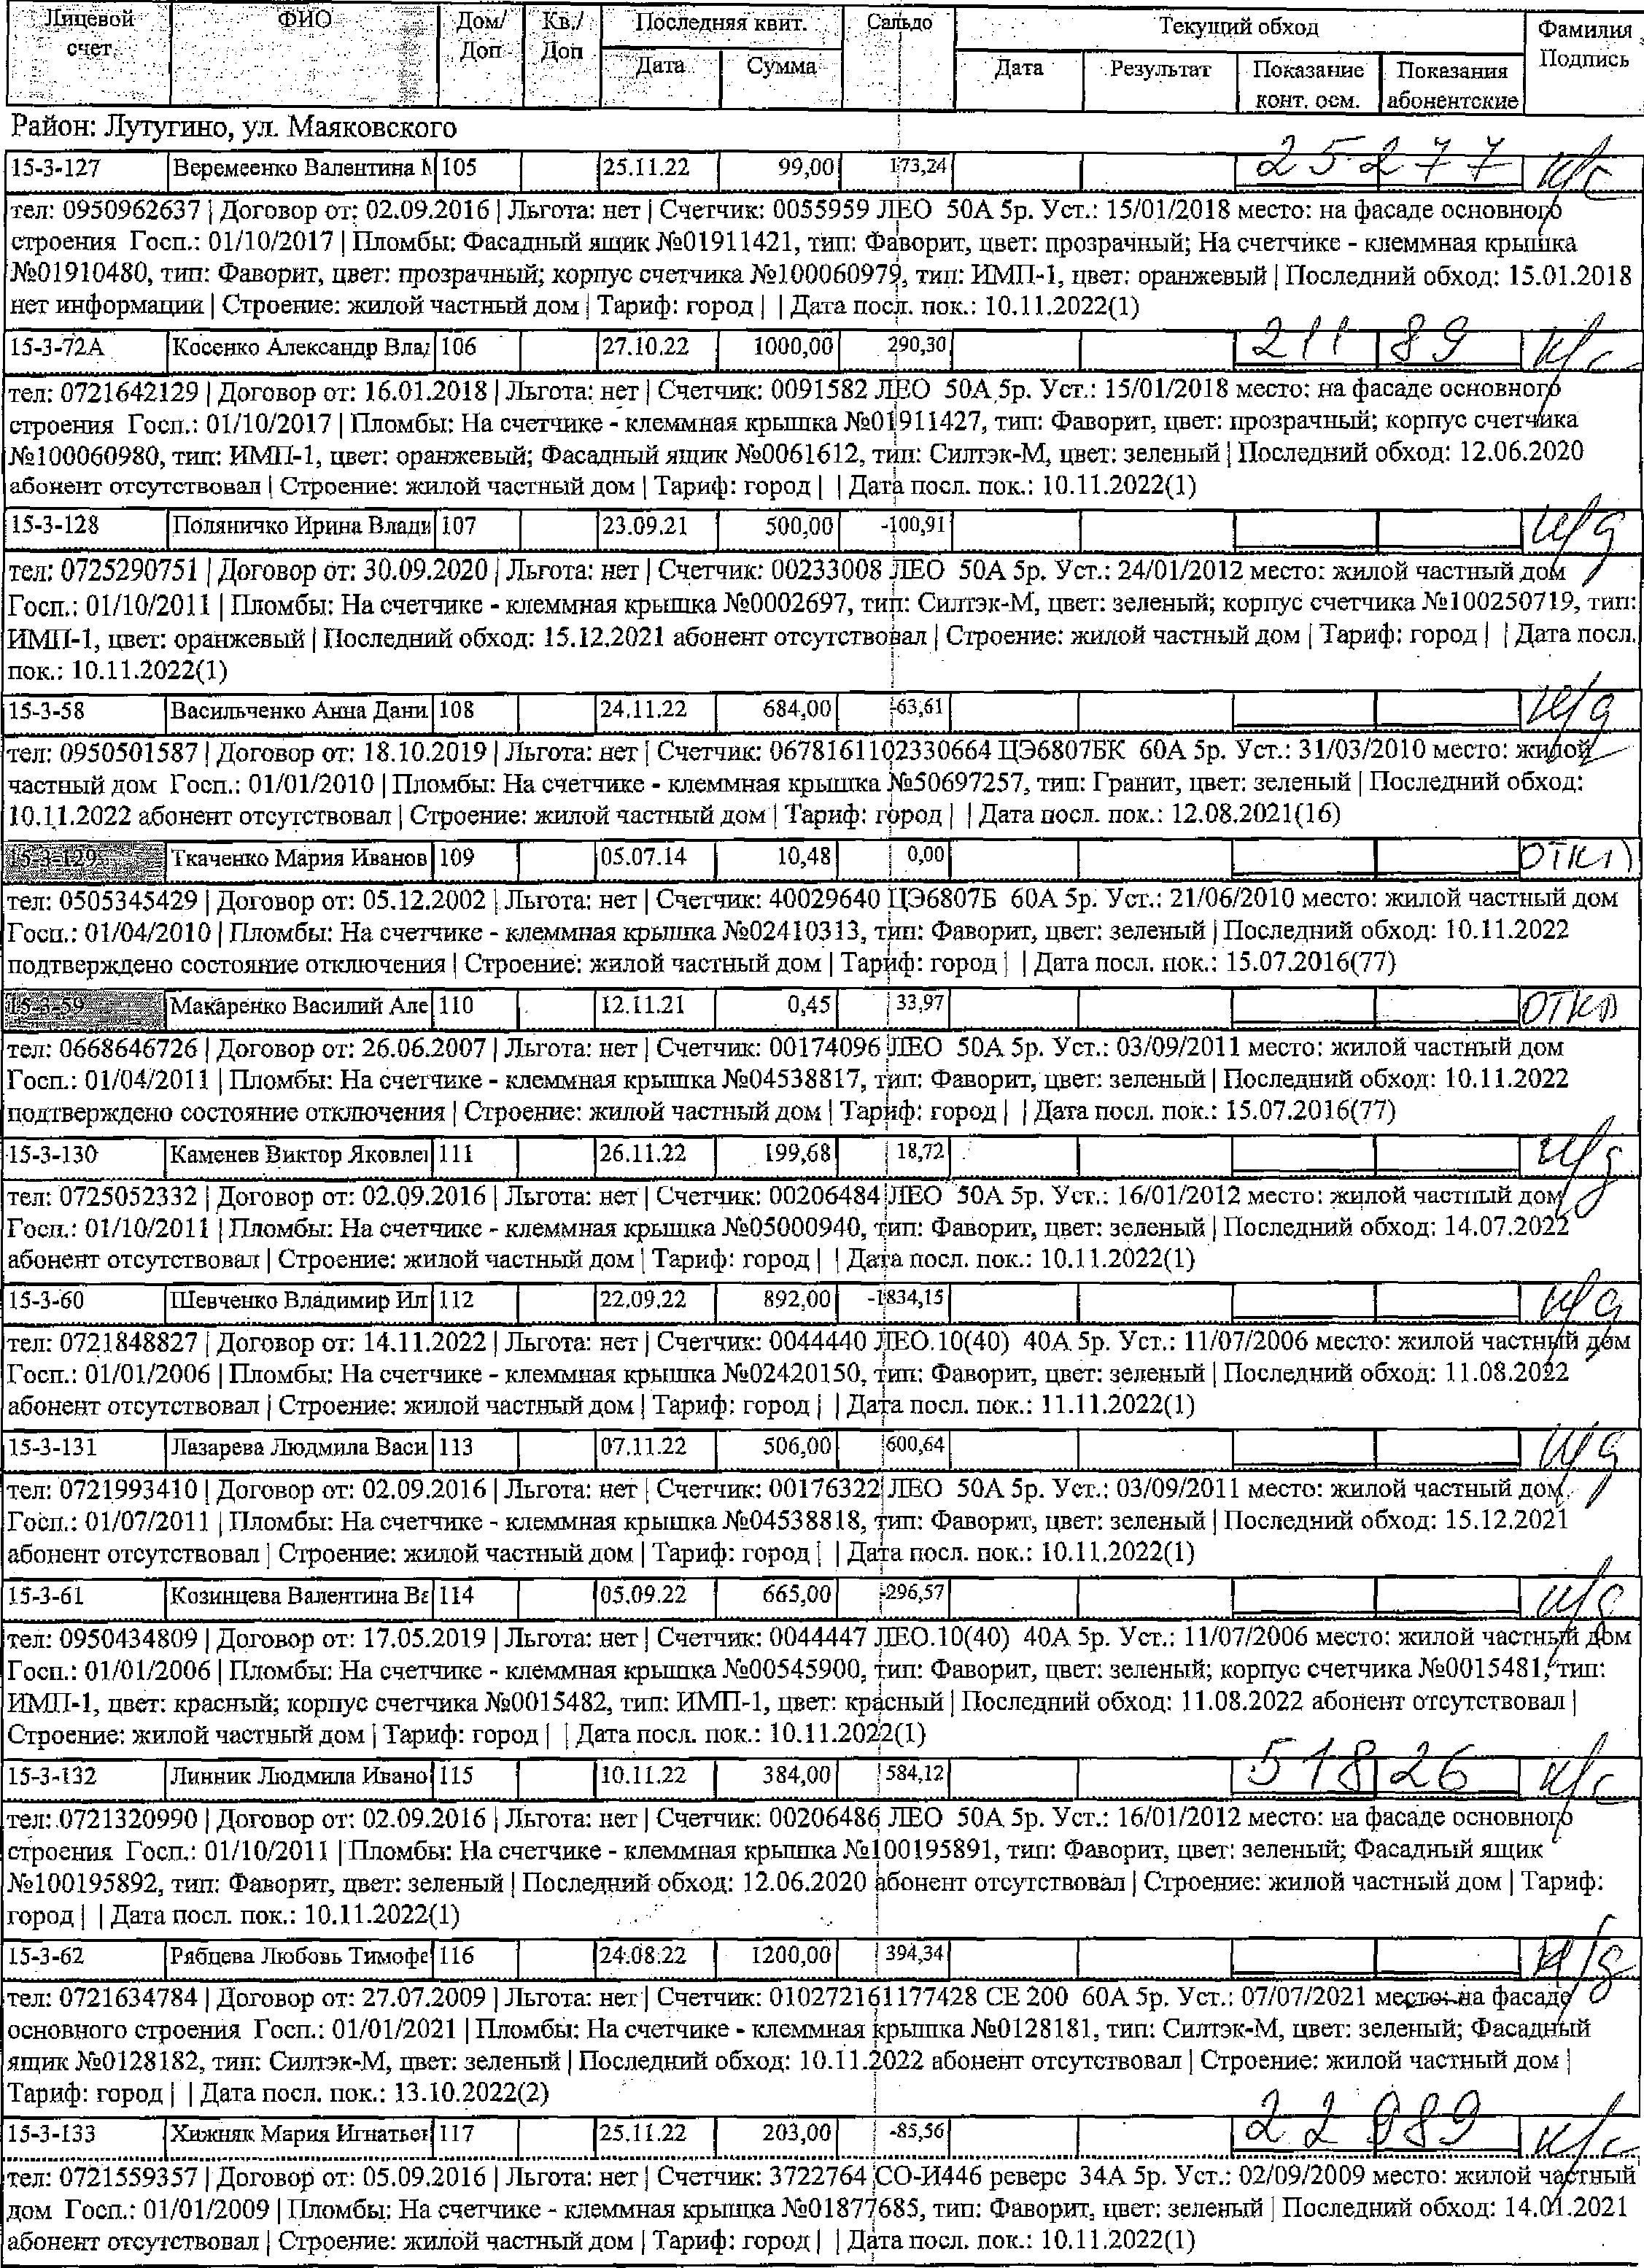 Лицевой счет. ФИО Дом/Доп Кв./Доп Последняя квит. Сальдо Текущий обход Фамилия Подпись
Дата Сумма Дата Результат Показание конт. осм. Показания абонентские
Район: Лутугино, ул. Маяковского
15-3-127 Веремеенко Валентина М 105 25.11.22 99,00 173,24 25277 к/с
тел: 0950962637 | Договор от: 02.09.2016 | Льгота: нет | Счетчик: 0055959 ЛЕО 50А 5р. Уст.: 15/01/2018 место: на фасаде основного
строения Госп.: 01/10/2017 | Пломбы: Фасадный ящик №01911421, тип: Фаворит, цвет: прозрачный; На счетчике - клеммная крышка
№01910480, тип: Фаворит, цвет: прозрачный; корпус счетчика №100060979, тип: ИМП-1, цвет: оранжевый | Последний обход: 15.01.2018
нет информации | Строение: жилой частный дом | Тариф: город | | Дата посл. пок.: 10.11.2022(1)
15-3-72А Косенко Александр Влад 106 27.10.22 1000,00 290,30 21189 к/с
тел: 0721642129 | Договор от: 16.01.2018 | Льгота: нет | Счетчик: 0091582 ЛЕО 50А 5р. Уст.: 15/01/2018 место: на фасаде основного
строения Госп.: 01/10/2017 | Пломбы: На счетчике - клеммная крышка №01911427, тип: Фаворит, цвет: прозрачный; корпус счетчика
№100060980, тип: ИМП-1, цвет: оранжевый; Фасадный ящик №0061612, тип: Силтэк-М, цвет: зеленый | Последний обход: 12.06.2020
абонент отсутствовал | Строение: жилой частный дом | Тариф: город | | Дата посл. пок.: 10.11.2022(1)
15-3-128 Поляничко Ирина Влади 107 23.09.21 500,00 -100,91 н/д
тел: 0725290751 | Договор от: 30.09.2020 | Льгота: нет | Счетчик: 00233008 ЛЕО 50А 5р. Уст.: 24/01/2012 место: жилой частный дом
Госп.: 01/10/2011 | Пломбы: На счетчике - клеммная крышка №0002697, тип: Силтэк-М, цвет: зеленый; корпус счетчика №100250719, тип:
ИМП-1, цвет: оранжевый | Последний обход: 15.12.2021 абонент отсутствовал | Строение: жилой частный дом | Тариф: город | | Дата посл.
пок.: 10.11.2022(1)
15-3-58 Васильченко Анна Дани 108 24.11.22 684,00 -63,61 н/д
тел: 0950501587 | Договор от: 18.10.2019 | Льгота: нет | Счетчик: 0678161102330664 ЦЭ6807БК 60А 5р. Уст.: 31/03/2010 место: жилой
частный дом Госп.: 01/01/2010 | Пломбы: На счетчике - клеммная крышка №50697257, тип: Гранит, цвет: зеленый | Последний обход:
10.11.2022 абонент отсутствовал | Строение: жилой частный дом | Тариф: город | | Дата посл. пок.: 12.08.2021(16)
15-3-129 Ткаченко Мария Иванов 109 05.07.14 10,48 0,00 откл
тел: 0505345429 | Договор от: 05.12.2002 | Льгота: нет | Счетчик: 40029640 ЦЭ6807Б 60А 5р. Уст.: 21/06/2010 место: жилой частный дом
Госп.: 01/04/2010 | Пломбы: На счетчике - клеммная крышка №02410313, тип: Фаворит, цвет: зеленый | Последний обход: 10.11.2022
подтверждено состояние отключения | Строение: жилой частный дом | Тариф: город | | Дата посл. пок.: 15.07.2016(77)
15-3-59 Макаренко Василий Але 110 12.11.21 0,45 33,97 откл
тел: 0668646726 | Договор от: 26.06.2007 | Льгота: нет | Счетчик: 00174096 ЛЕО 50А 5р. Уст.: 03/09/2011 место: жилой частный дом
Госп.: 01/04/2011 | Пломбы: На счетчике - клеммная крышка №04538817, тип: Фаворит, цвет: зеленый | Последний обход: 10.11.2022
подтверждено состояние отключения | Строение: жилой частный дом | Тариф: город | | Дата посл. пок.: 15.07.2016(77)
15-3-130 Каменев Виктор Яковлев 111 26.11.22 199,68 18,72 н/д
тел: 0725052332 | Договор от: 02.09.2016 | Льгота: нет | Счетчик: 00206484 ЛЕО 50А 5р. Уст.: 16/01/2012 место: жилой частный дом
Госп.: 01/10/2011 | Пломбы: На счетчике - клеммная крышка №05000940, тип: Фаворит, цвет: зеленый | Последний обход: 14.07.2022
абонент отсутствовал | Строение: жилой частный дом | Тариф: город | | Дата посл. пок.: 10.11.2022(1)
15-3-60 Шевченко Владимир Ил 112 22.09.22 892,00 -1834,15 н/д
тел: 0721848827 | Договор от: 14.11.2022 | Льгота: нет | Счетчик: 0044440 ЛЕО.10(40) 40А 5р. Уст.: 11/07/2006 место: жилой частный дом
Госп.: 01/01/2006 | Пломбы: На счетчике - клеммная крышка №02420150, тип: Фаворит, цвет: зеленый | Последний обход: 11.08.2022
абонент отсутствовал | Строение: жилой частный дом | Тариф: город | | Дата посл. пок.: 11.11.2022(1)
15-3-131 Лазарева Людмила Васи 113 07.11.22 506,00 600,64 н/д
тел: 0721993410 | Договор от: 02.09.2016 | Льгота: нет | Счетчик: 00176322 ЛЕО 50А 5р. Уст.: 03/09/2011 место: жилой частный дом
Госп.: 01/07/2011 | Пломбы: На счетчике - клеммная крышка №04538818, тип: Фаворит, цвет: зеленый | Последний обход: 15.12.2021
абонент отсутствовал | Строение: жилой частный дом | Тариф: город | | Дата посл. пок.: 10.11.2022(1)
15-3-61 Козинцева Валентина Ва 114 05.09.22 665,00 -296,57 н/д
тел: 0950434809 | Договор от: 17.05.2019 | Льгота: нет | Счетчик: 0044447 ЛЕО.10(40) 40А 5р. Уст.: 11/07/2006 место: жилой частный дом
Госп.: 01/01/2006 | Пломбы: На счетчике - клеммная крышка №00545900, тип: Фаворит, цвет: зеленый; корпус счетчика №0015481, тип:
ИМП-1, цвет: красный; корпус счетчика №0015482, тип: ИМП-1, цвет: красный | Последний обход: 11.08.2022 абонент отсутствовал |
Строение: жилой частный дом | Тариф: город | | Дата посл. пок.: 10.11.2022(1)
15-3-132 Линник Людмила Ивано 115 10.11.22 384,00 584,12 51826 к/с
тел: 0721320990 | Договор от: 02.09.2016 | Льгота: нет | Счетчик: 00206486 ЛЕО 50А 5р. Уст.: 16/01/2012 место: на фасаде основного
строения Госп.: 01/10/2011 | Пломбы: На счетчике - клеммная крышка №100195891, тип: Фаворит, цвет: зеленый; Фасадный ящик
№100195892, тип: Фаворит, цвет: зеленый | Последний обход: 12.06.2020 абонент отсутствовал | Строение: жилой частный дом | Тариф:
город | | Дата посл. пок.: 10.11.2022(1)
15-3-62 Рябцева Любовь Тимофе 116 24.08.22 1200,00 394,34 н/д
тел: 0721634784 | Договор от: 27.07.2009 | Льгота: нет | Счетчик: 010272161177428 СЕ 200 60А 5р. Уст.: 07/07/2021 место: на фасаде
основного строения Госп.: 01/01/2021 | Пломбы: На счетчике - клеммная крышка №0128181, тип: Силтэк-М, цвет: зеленый; Фасадный
ящик №0128182, тип: Силтэк-М, цвет: зеленый | Последний обход: 10.11.2022 абонент отсутствовал | Строение: жилой частный дом |
Тариф: город | | Дата посл. пок.: 13.10.2022(2)
15-3-133 Хижняк Мария Игнатьев 117 25.11.22 203,00 -85,56 22989 к/с
тел: 0721559357 | Договор от: 05.09.2016 | Льгота: нет | Счетчик: 3722764 СО-И446 реверс 34А 5р. Уст.: 02/09/2009 место: жилой частный
дом Госп.: 01/01/2009 | Пломбы: На счетчике - клеммная крышка №01877685, тип: Фаворит, цвет: зеленый | Последний обход: 14.01.2021
абонент отсутствовал | Строение: жилой частный дом | Тариф: город | | Дата посл. пок.: 10.11.2022(1)